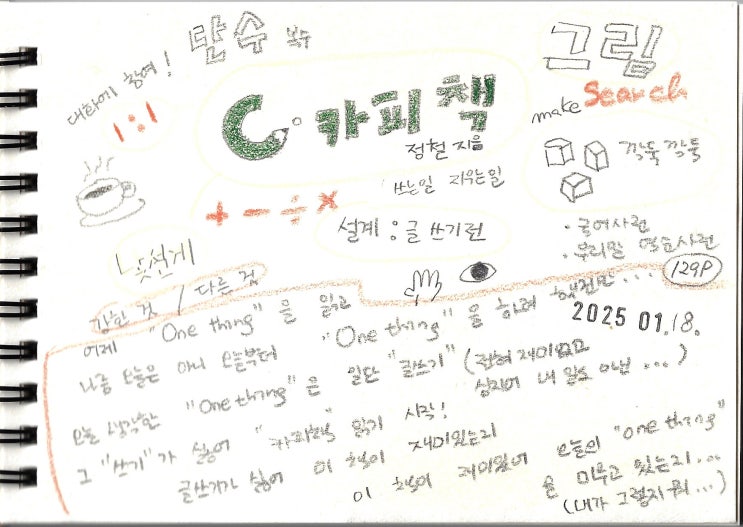 탄수 복수
그림
대화에 참여!
1:1
카피책
정철 지음
make Search
깍둑깍둑
쓰는일 지우는일
+ - ÷ ×
설계 : 글쓰기란
낯설게
· 국어사전
· 우리말 역순사전
딱한 것 / 다른 것
129P
2025 01.18.
어제 "One thing"을 읽고
나름 오늘은 아니 오늘부터 "One thing"을 하려 했건만...
오늘 생각한 "One thing"은 일단 "글쓰기" (전혀 재미없고
상지어 내 일도 아닌...)
그 "쓰기"가 싫어 "카피책" 읽기 시작!
글쓰기가 싫어 이 책이 재미있는지
이 책이 재미있어 오늘의 "one thing"
을 미루고 있는지...
(내가 그렇지 뭐...)